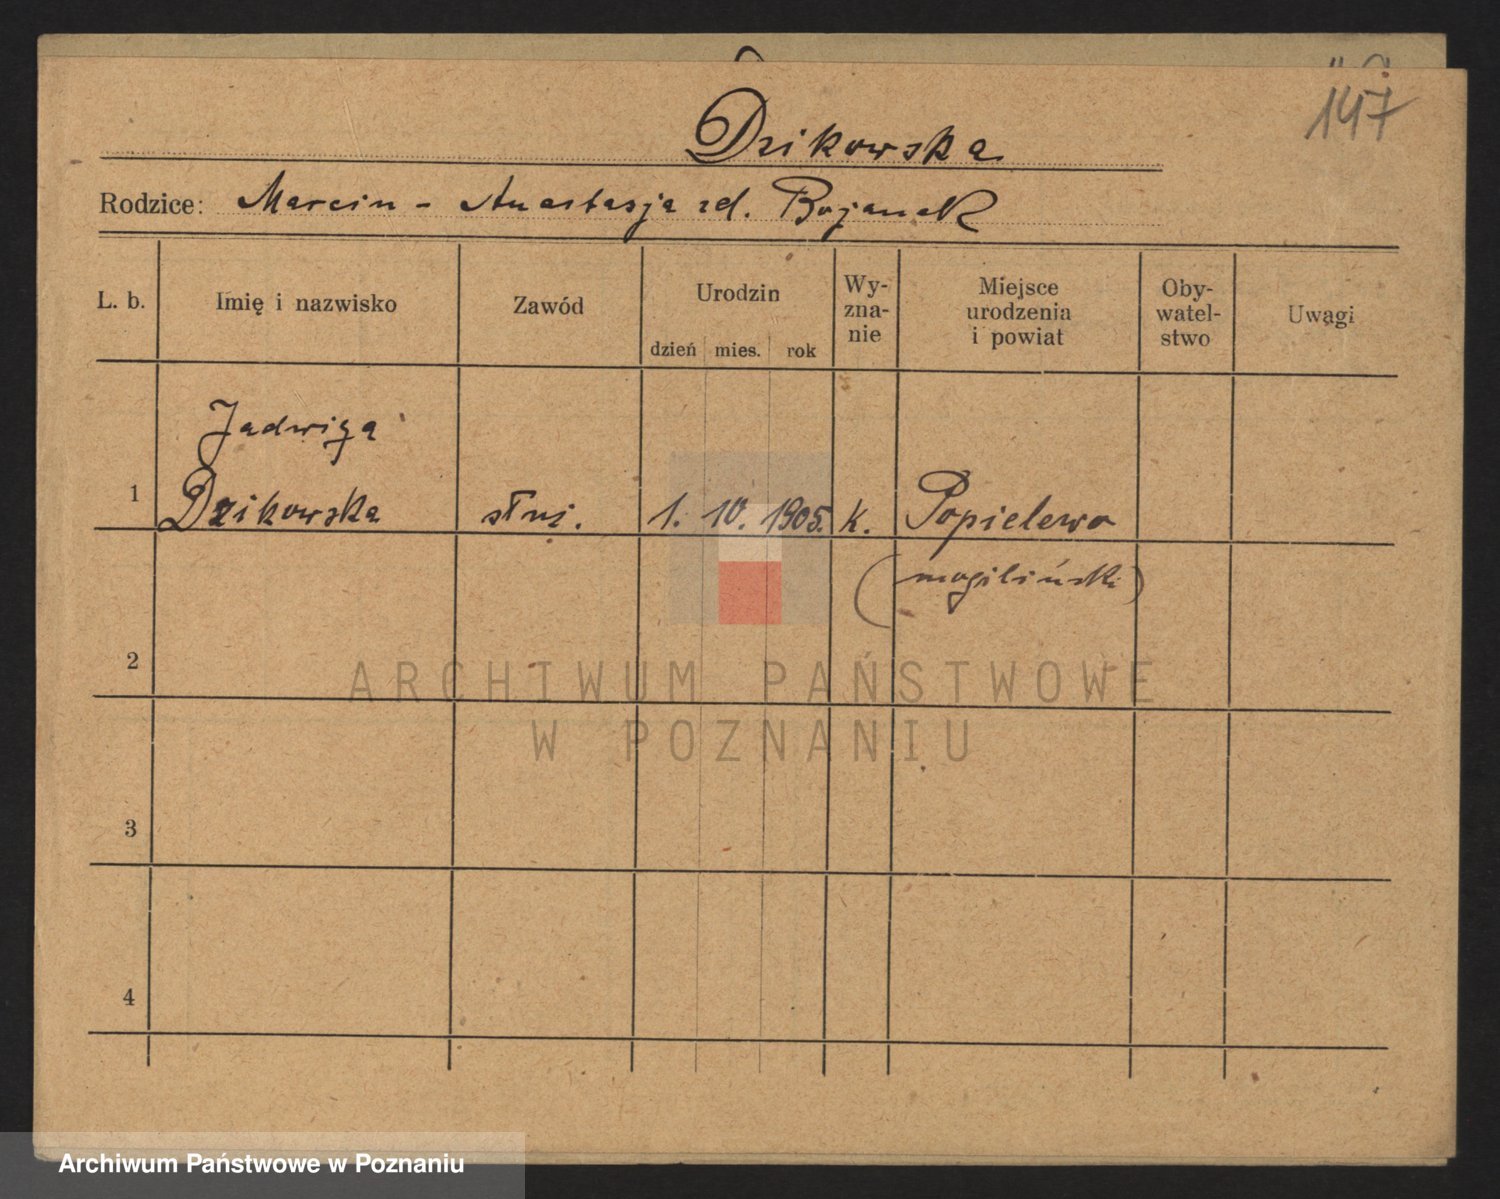 147
Dzikowska
Rodzice: Marcin - Anastasja zd. Bojanek
L. b.
Imię i nazwisko
Zawód
Urodzin
dzień mies. rok
Wy-
zna-
nie
Miejsce
urodzenia
i powiat
Oby-
watel-
stwo
Uwagi
Jadwiga
1 Dzikowska służ. 1. 10. 1905. k. Popielewo
(mogiliński)
2
ARCHIWUM PAŃSTWOWE
W POZNANIU
3
4
Archiwum Państwowe w Poznaniu